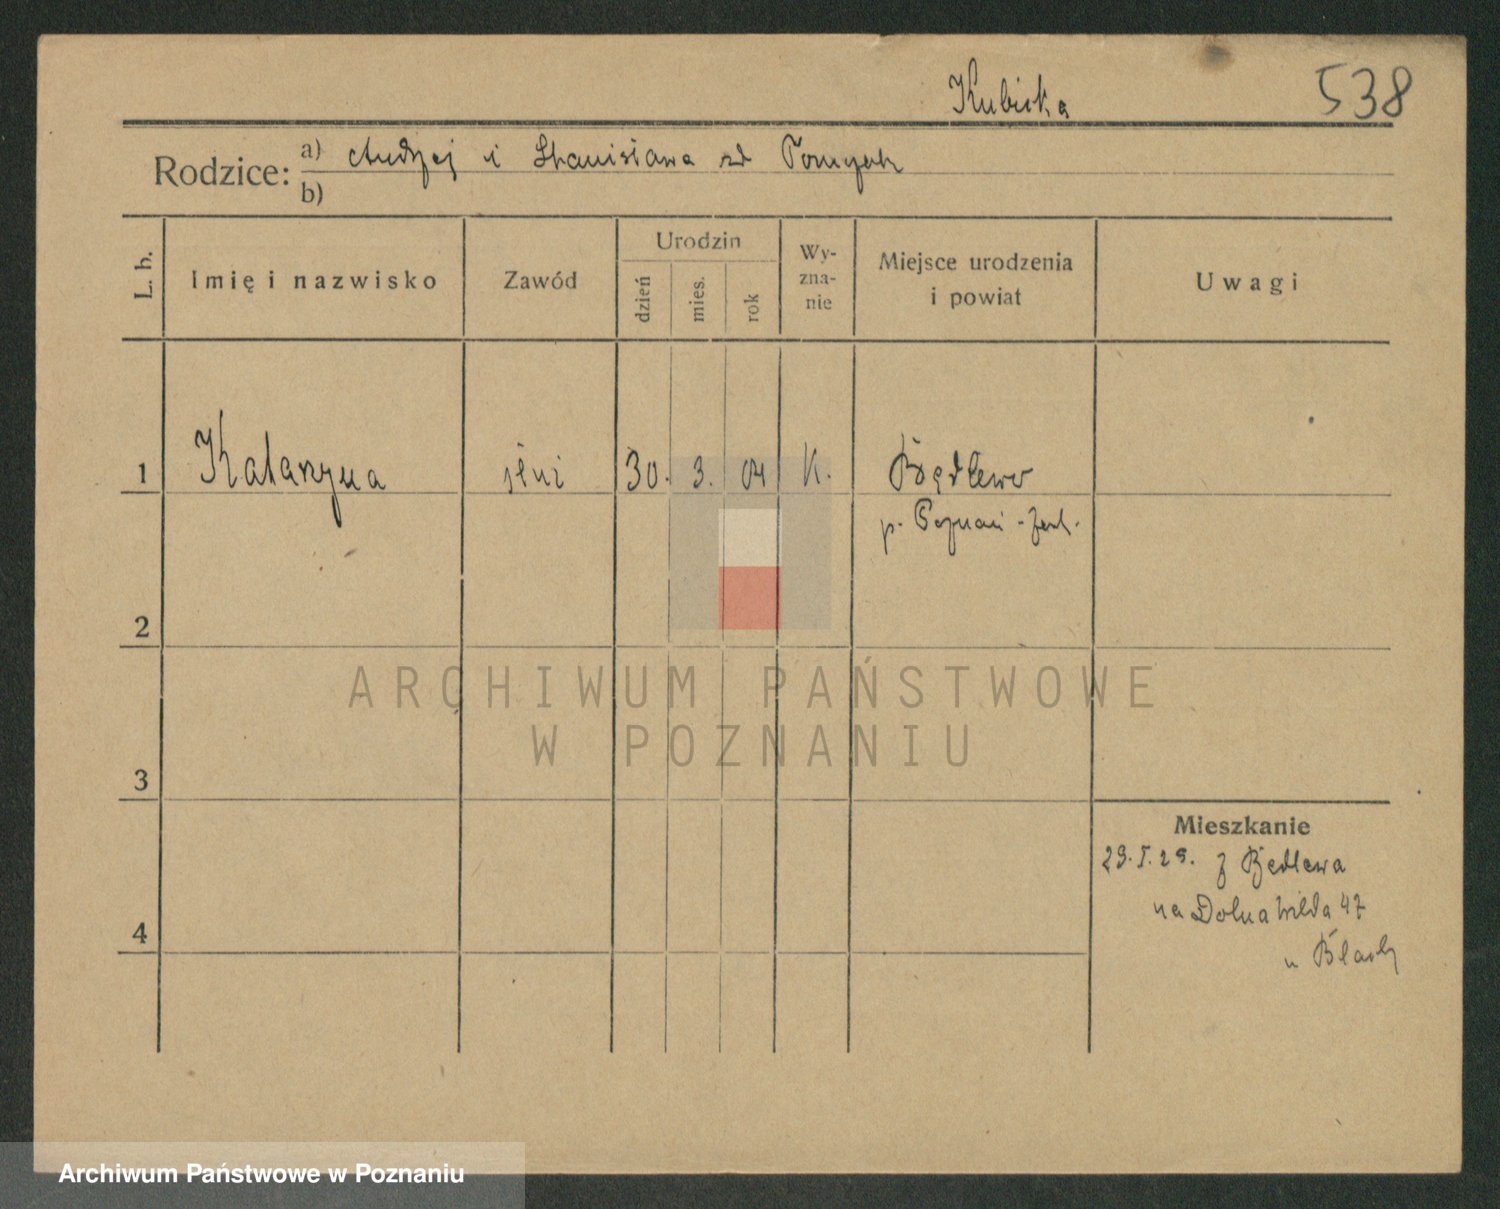 Kubicka
538
Rodzice: a) Andrzej i Stanisława zd
b)
L. b.
Imię i nazwisko
Zawód
Urodzin
dzień
mies.
rok
Wy-
zna-
nie
Miejsce urodzenia
i powiat
Uwagi
1 Katarzyna służ 30. 3. 04 K. Będlewo
p. Poznań - zach.
2
3
4
Mieszkanie
29.I.29. z Będlewa
na Dolna Wilda 47
u
ARCHIWUM PAŃSTWOWE
W POZNANIU
Archiwum Państwowe w Poznaniu